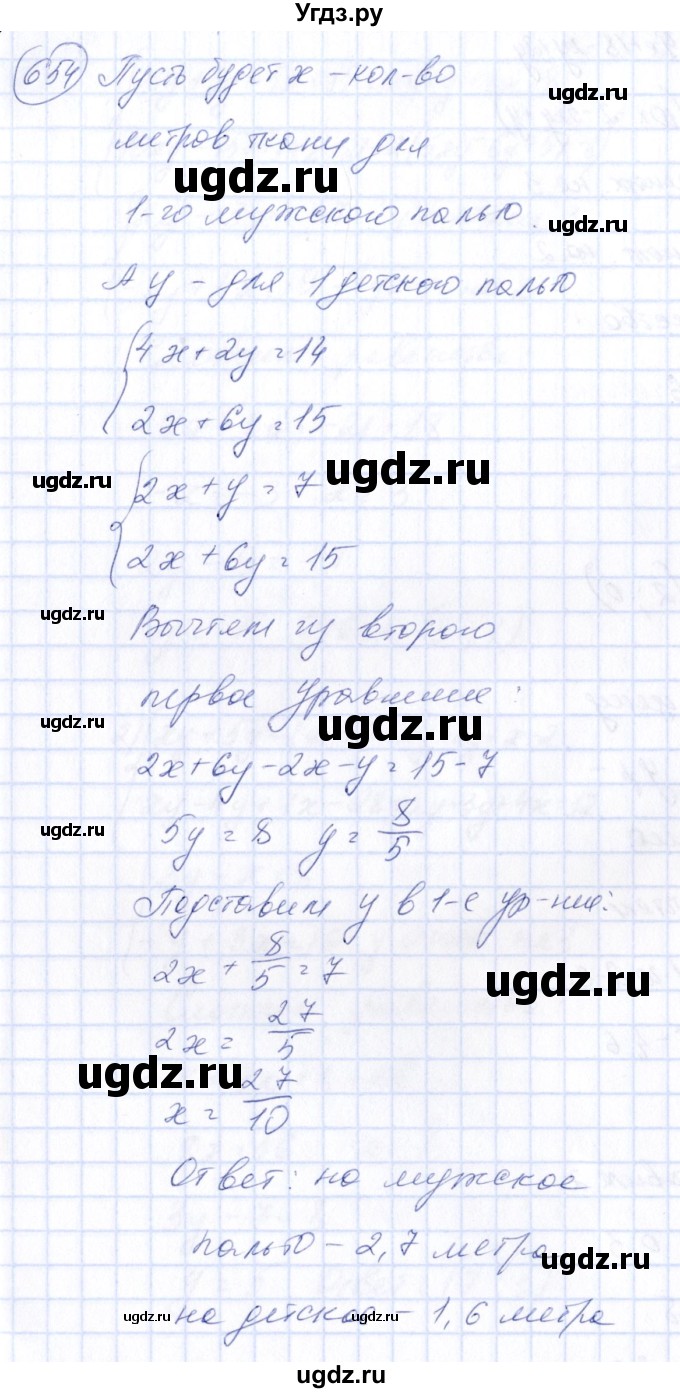 Угдз.ру
654 Пусть будет x – кол-во
ugdz.ru
метров ткани для
ugdz.ru
1-го мужского пальто.
ugdz.ru
А y – для 1 детского пальто
4x + 2y = 14
2x + 6y = 15
ugdz.ru
ugdz.ru
2x + y = 7
2x + 6y = 15
ugdz.ru
Вычтем из второго
первое уравнение:
ugdz.ru
ugdz.ru
2x + 6y – 2x – y = 15 – 7
ugdz.ru
5y = 8 y = 8/5
Подставим y в 1-е ур-ние:
2x + 8/5 = 7
ugdz.ru
2x = 27/5
ugdz.ru
x = 27/10
Ответ: на мужское
пальто – 2,7 метра
ugdz.ru
ugdz.ru
на детское – 1,6 метра
ugdz.ru
ugdz.ru